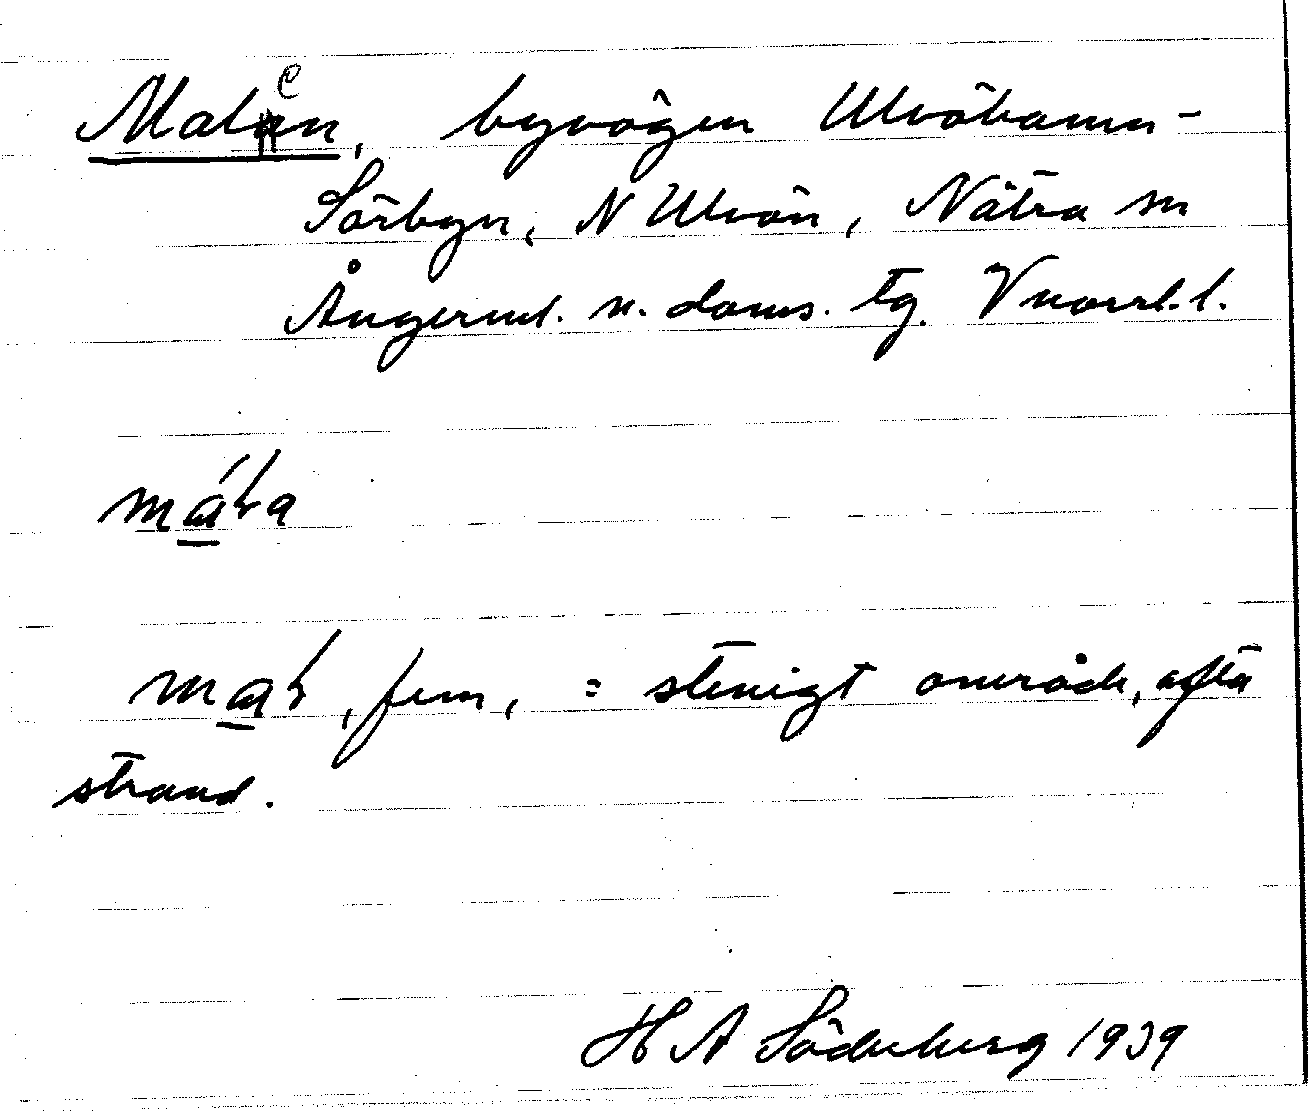 Malen, byvägen Ulvöhamn-
Sörbyn, N Ulvön, Nätra sn
Ångerml. n. doms. tg. Vnorrl. l.
máɫa
maɫ, fem, = stenigt område, ofta
strand.
H A Söderberg 1939